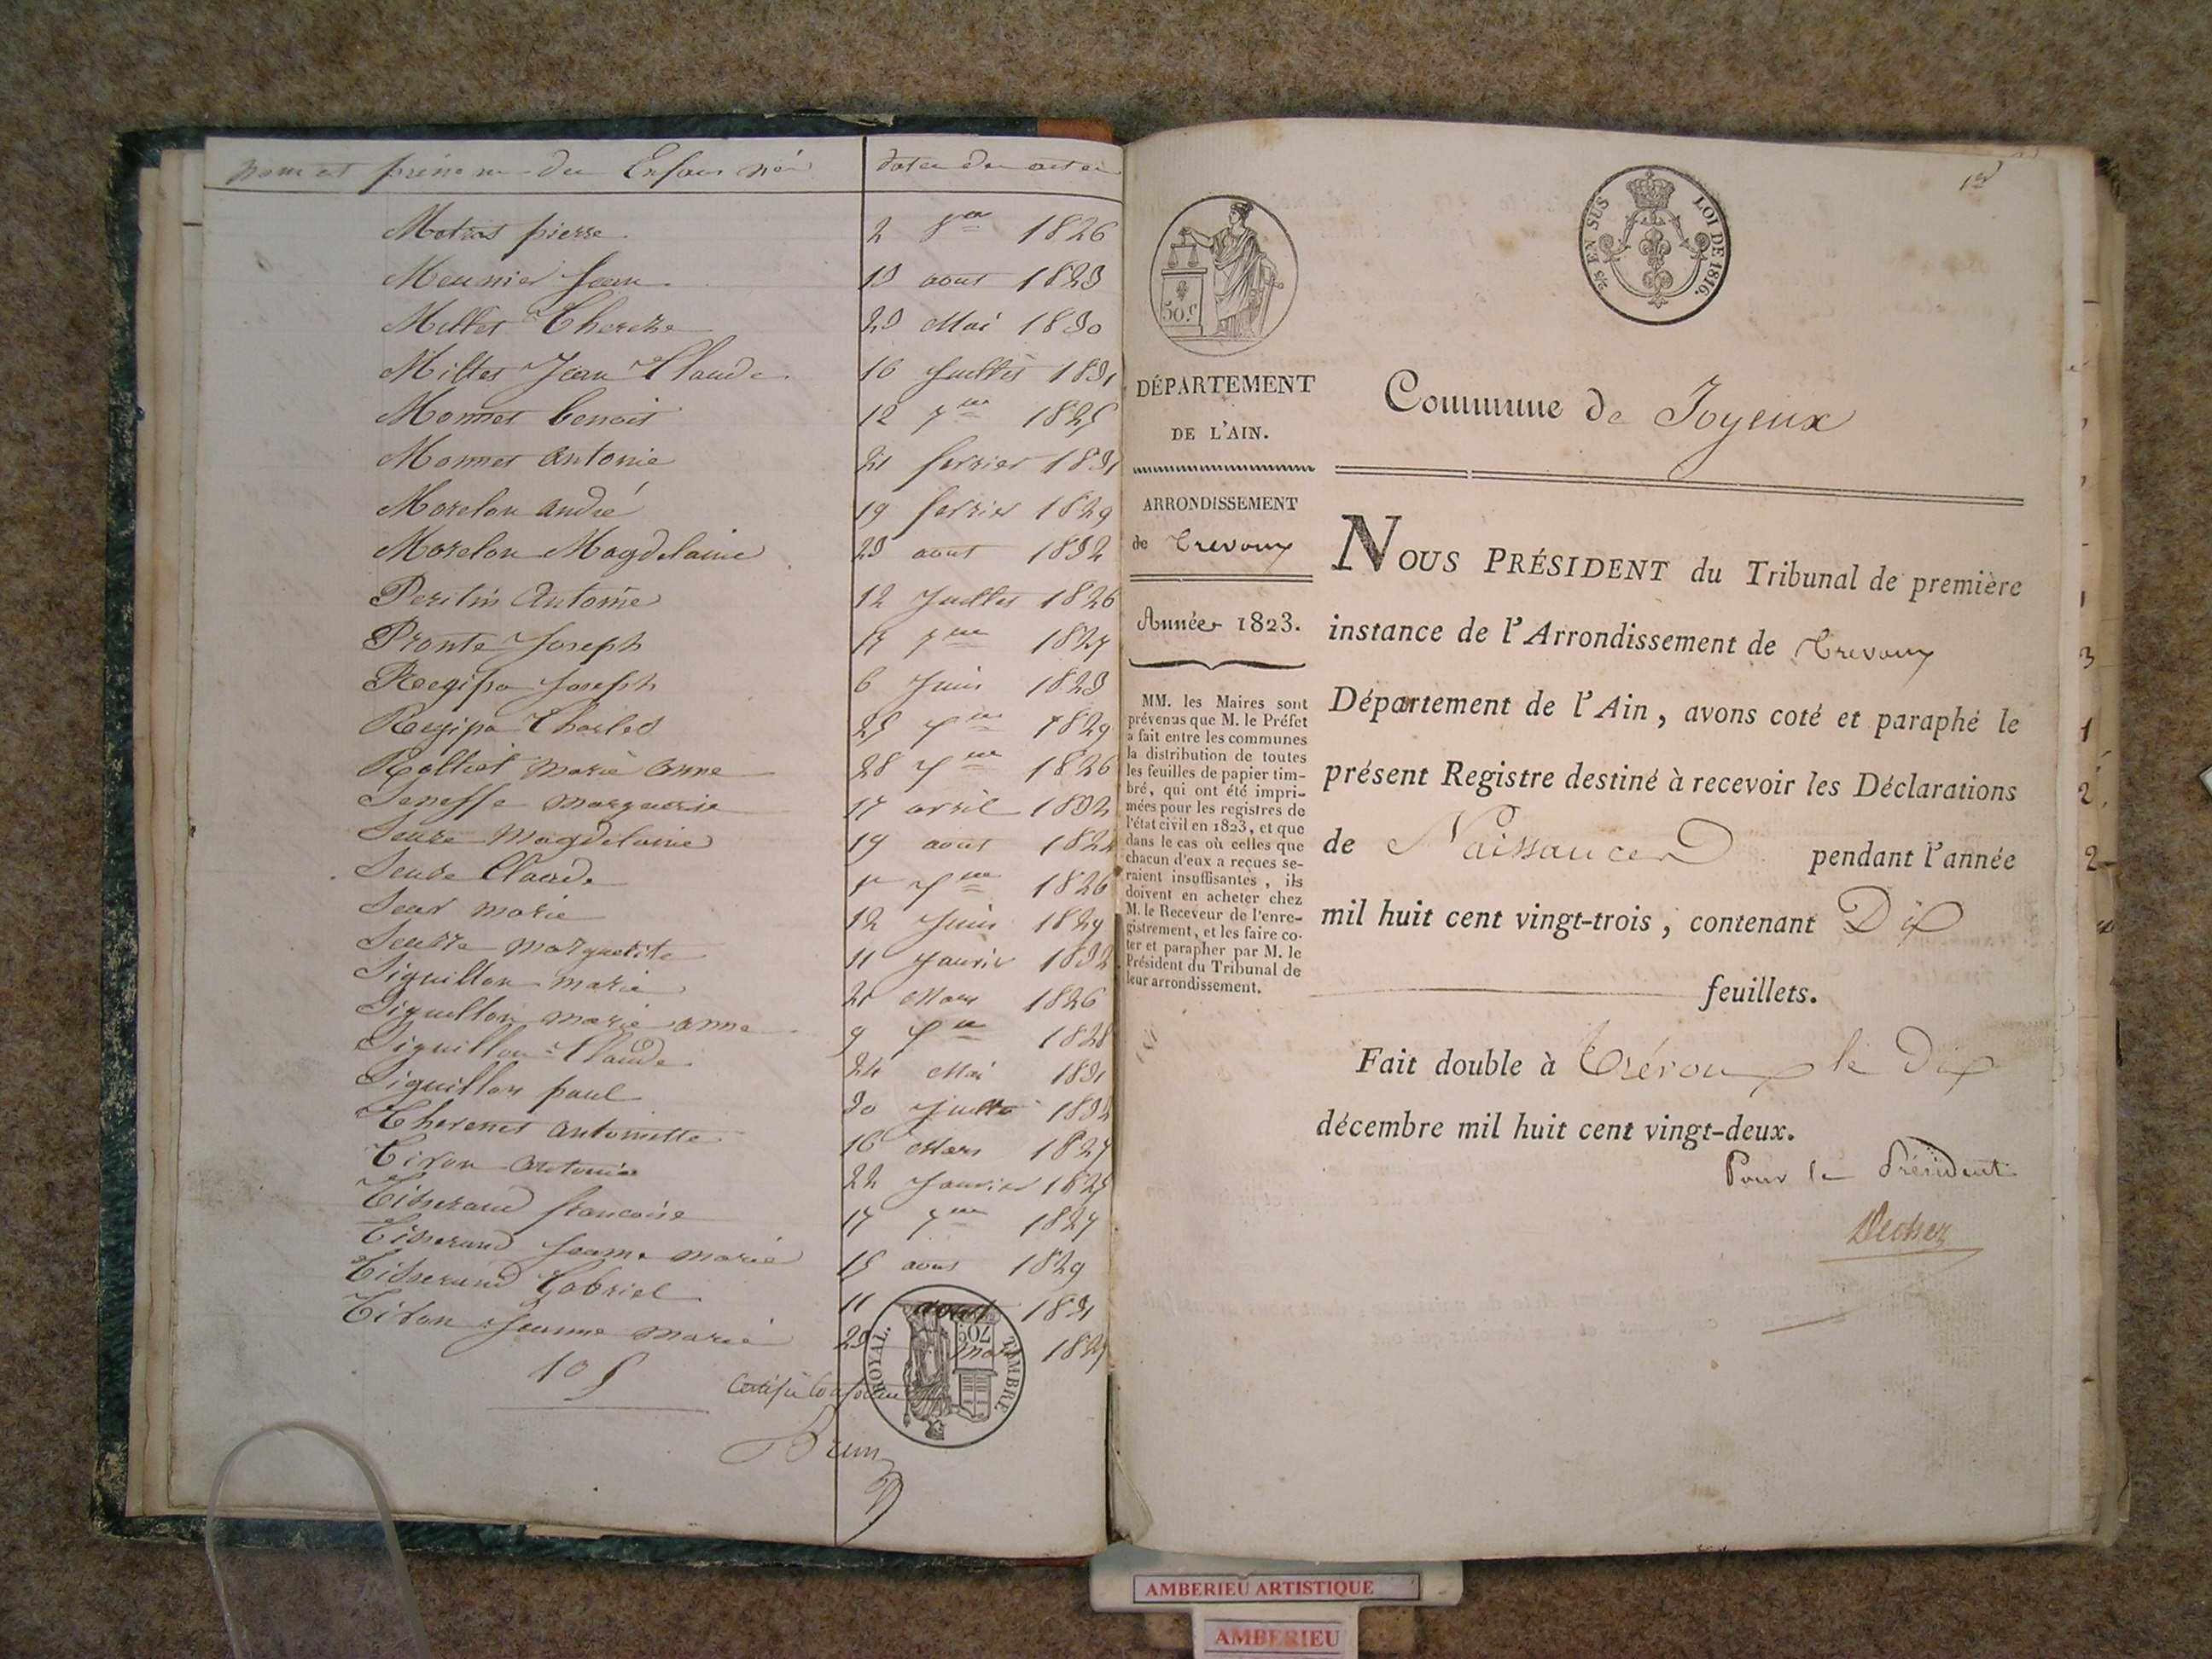 nom et prénom des Enfans nés dates des actes
Motras pierre 2 8bre 1826
Meunier Jean 13 aout 1823
Millet Therese 23 Mai 1830
Millet Jean Claude 16 Juillet 1831
Monnet benoit 12 7bre 1825
Monnet antonie 21 fevrier 1831
Morelon andré 19 fevrier 1829
Morelon Magdelaine 23 aout 1832
Peritin Antoine 12 Juillet 1826
Pronte Joseph 15 7bre 1827
Regipa Joseph 6 Juin 1823
Regipa Charles 25 7bre 1829
Rolliet marie anne 28 7bre 1826
marguerie 17 avril 1832
Seure Magdelaine 19 aout
Seure Claude 7bre 1826
marie 12 Juin 1829
Seurre marguerite 11 Janvier 1832
Siguillon marie 21 Mars 1826
Siguillon marie anne 9 1828
Siguillon Claude 24 Mai 1831
Siguillon paul 30 Juillet 1832
Therenet antoinette 16 Mars 1827
Tivon antonie 22 Janvier 1825
Tisserand francoise 17 7bre 1827
Tisserand Jeanne marie 15 aout 1829
Tisserand Gabriel 11 aout 1831
Tivon Jeanne marie 23 mars
ROYAL. TIMBRE
Certifié Conforme
Brun
1er
2/5 EN SUS LOI DE 1816.
50.c
DÉPARTEMENT
DE L'AIN.
Commune de Joyeux
ARRONDISSEMENT
de Trevoux
Année 1823.
MM. les Maires sont
prévenus que M. le Préfet
a fait entre les communes
la distribution de toutes
les feuilles de papier tim-
bré, qui ont été impri-
mées pour les registres de
l'état civil en 1823, et que
dans le cas où celles que
chacun d'eux a reçues se-
raient insuffisantes, ils
doivent en acheter chez
M. le Receveur de l'enre-
gistrement, et les faire co-
ter et parapher par M. le
Président du Tribunal de
leur arrondissement.
NOUS PRÉSIDENT du Tribunal de première
instance de l'Arrondissement de Trevoux
Département de l'Ain, avons coté et paraphé le
présent Registre destiné à recevoir les Déclarations
de Naissances pendant l'année
mil huit cent vingt-trois, contenant Dix
feuillets.
Fait double à Trévoux le Dix
décembre mil huit cent vingt-deux.
Pour le Président
AMBERIEU ARTISTIQUE
AMBERIEU